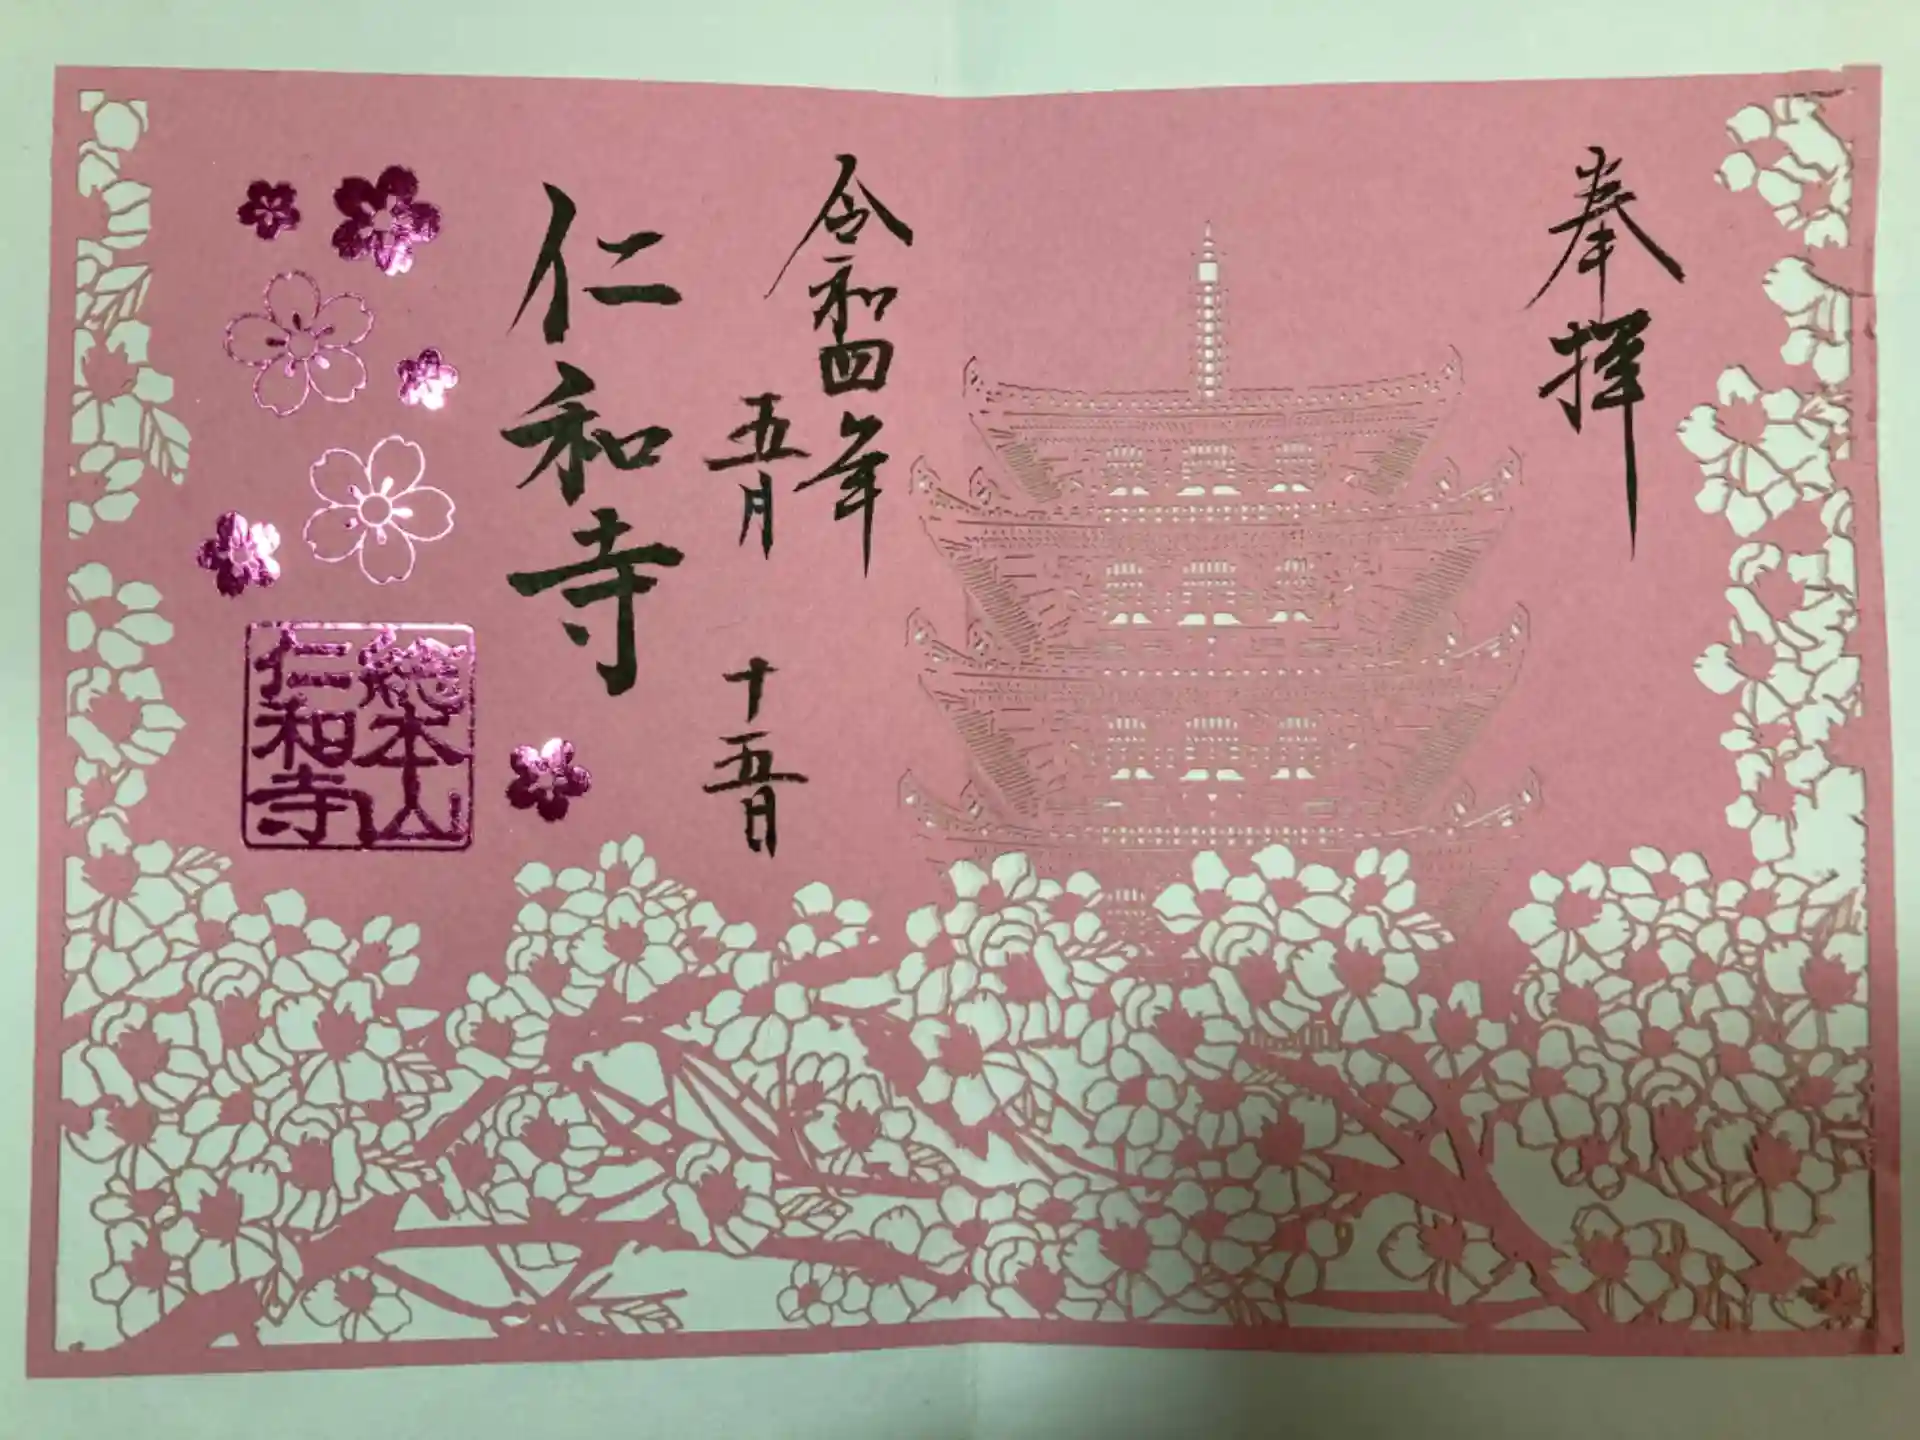 奉拝
令和四年
五月
十五日
仁和寺
総本山
仁和寺